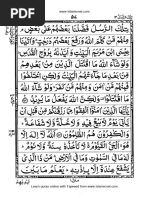 www.islamicnet.com
٥٨
تِلْكَ الرُّسُلُ فَضَّلْنَا بَعْضَهُمْ عَلٰى بَعْضٍ
مِنْهُمْ مَّنْ كَلَّمَ اللّٰهُ وَرَفَعَ بَعْضَهُمْ دَرَجٰتٍ وَاٰتَيْنَا
عِيْسَى ابْنَ مَرْيَمَ الْبَيِّنٰتِ وَاَيَّدْنٰهُ بِرُوْحِ الْقُدُسِ وَلَوْ
شَآءَ اللّٰهُ مَا اقْتَتَلَ الَّذِيْنَ مِنْۢ بَعْدِهِمْ مِّنْۢ بَعْدِ مَا
جَآءَتْهُمُ الْبَيِّنٰتُ وَلٰكِنِ اخْتَلَفُوْا فَمِنْهُمْ مَّنْ اٰمَنَ وَ
مِنْهُمْ مَّنْ كَفَرَ وَلَوْ شَآءَ اللّٰهُ مَا اقْتَتَلُوْا وَلٰكِنَّ اللّٰهَ
يَفْعَلُ مَا يُرِيْدُ يٰۤاَيُّهَا الَّذِيْنَ اٰمَنُوْۤا اَنْفِقُوْا مِمَّا
رَزَقْنٰكُمْ مِّنْ قَبْلِ اَنْ يَّاْتِيَ يَوْمٌ لَّا بَيْعٌ فِيْهِ وَلَا خُلَّةٌ وَّلَا شَفَاعَةٌ
وَالْكٰفِرُوْنَ هُمُ الظّٰلِمُوْنَ اَللّٰهُ لَاۤ اِلٰهَ اِلَّا هُوَ
اَلْحَيُّ الْقَيُّوْمُ لَا تَاْخُذُهٗ سِنَةٌ وَّلَا نَوْمٌ لَهٗ مَا فِي
السَّمٰوٰتِ وَمَا فِي الْاَرْضِ مَنْ ذَا الَّذِيْ يَشْفَعُ
عِنْدَهٗۤ اِلَّا بِاِذْنِهٖ
Learn quran online with Tajweed from www.islamicnet.com